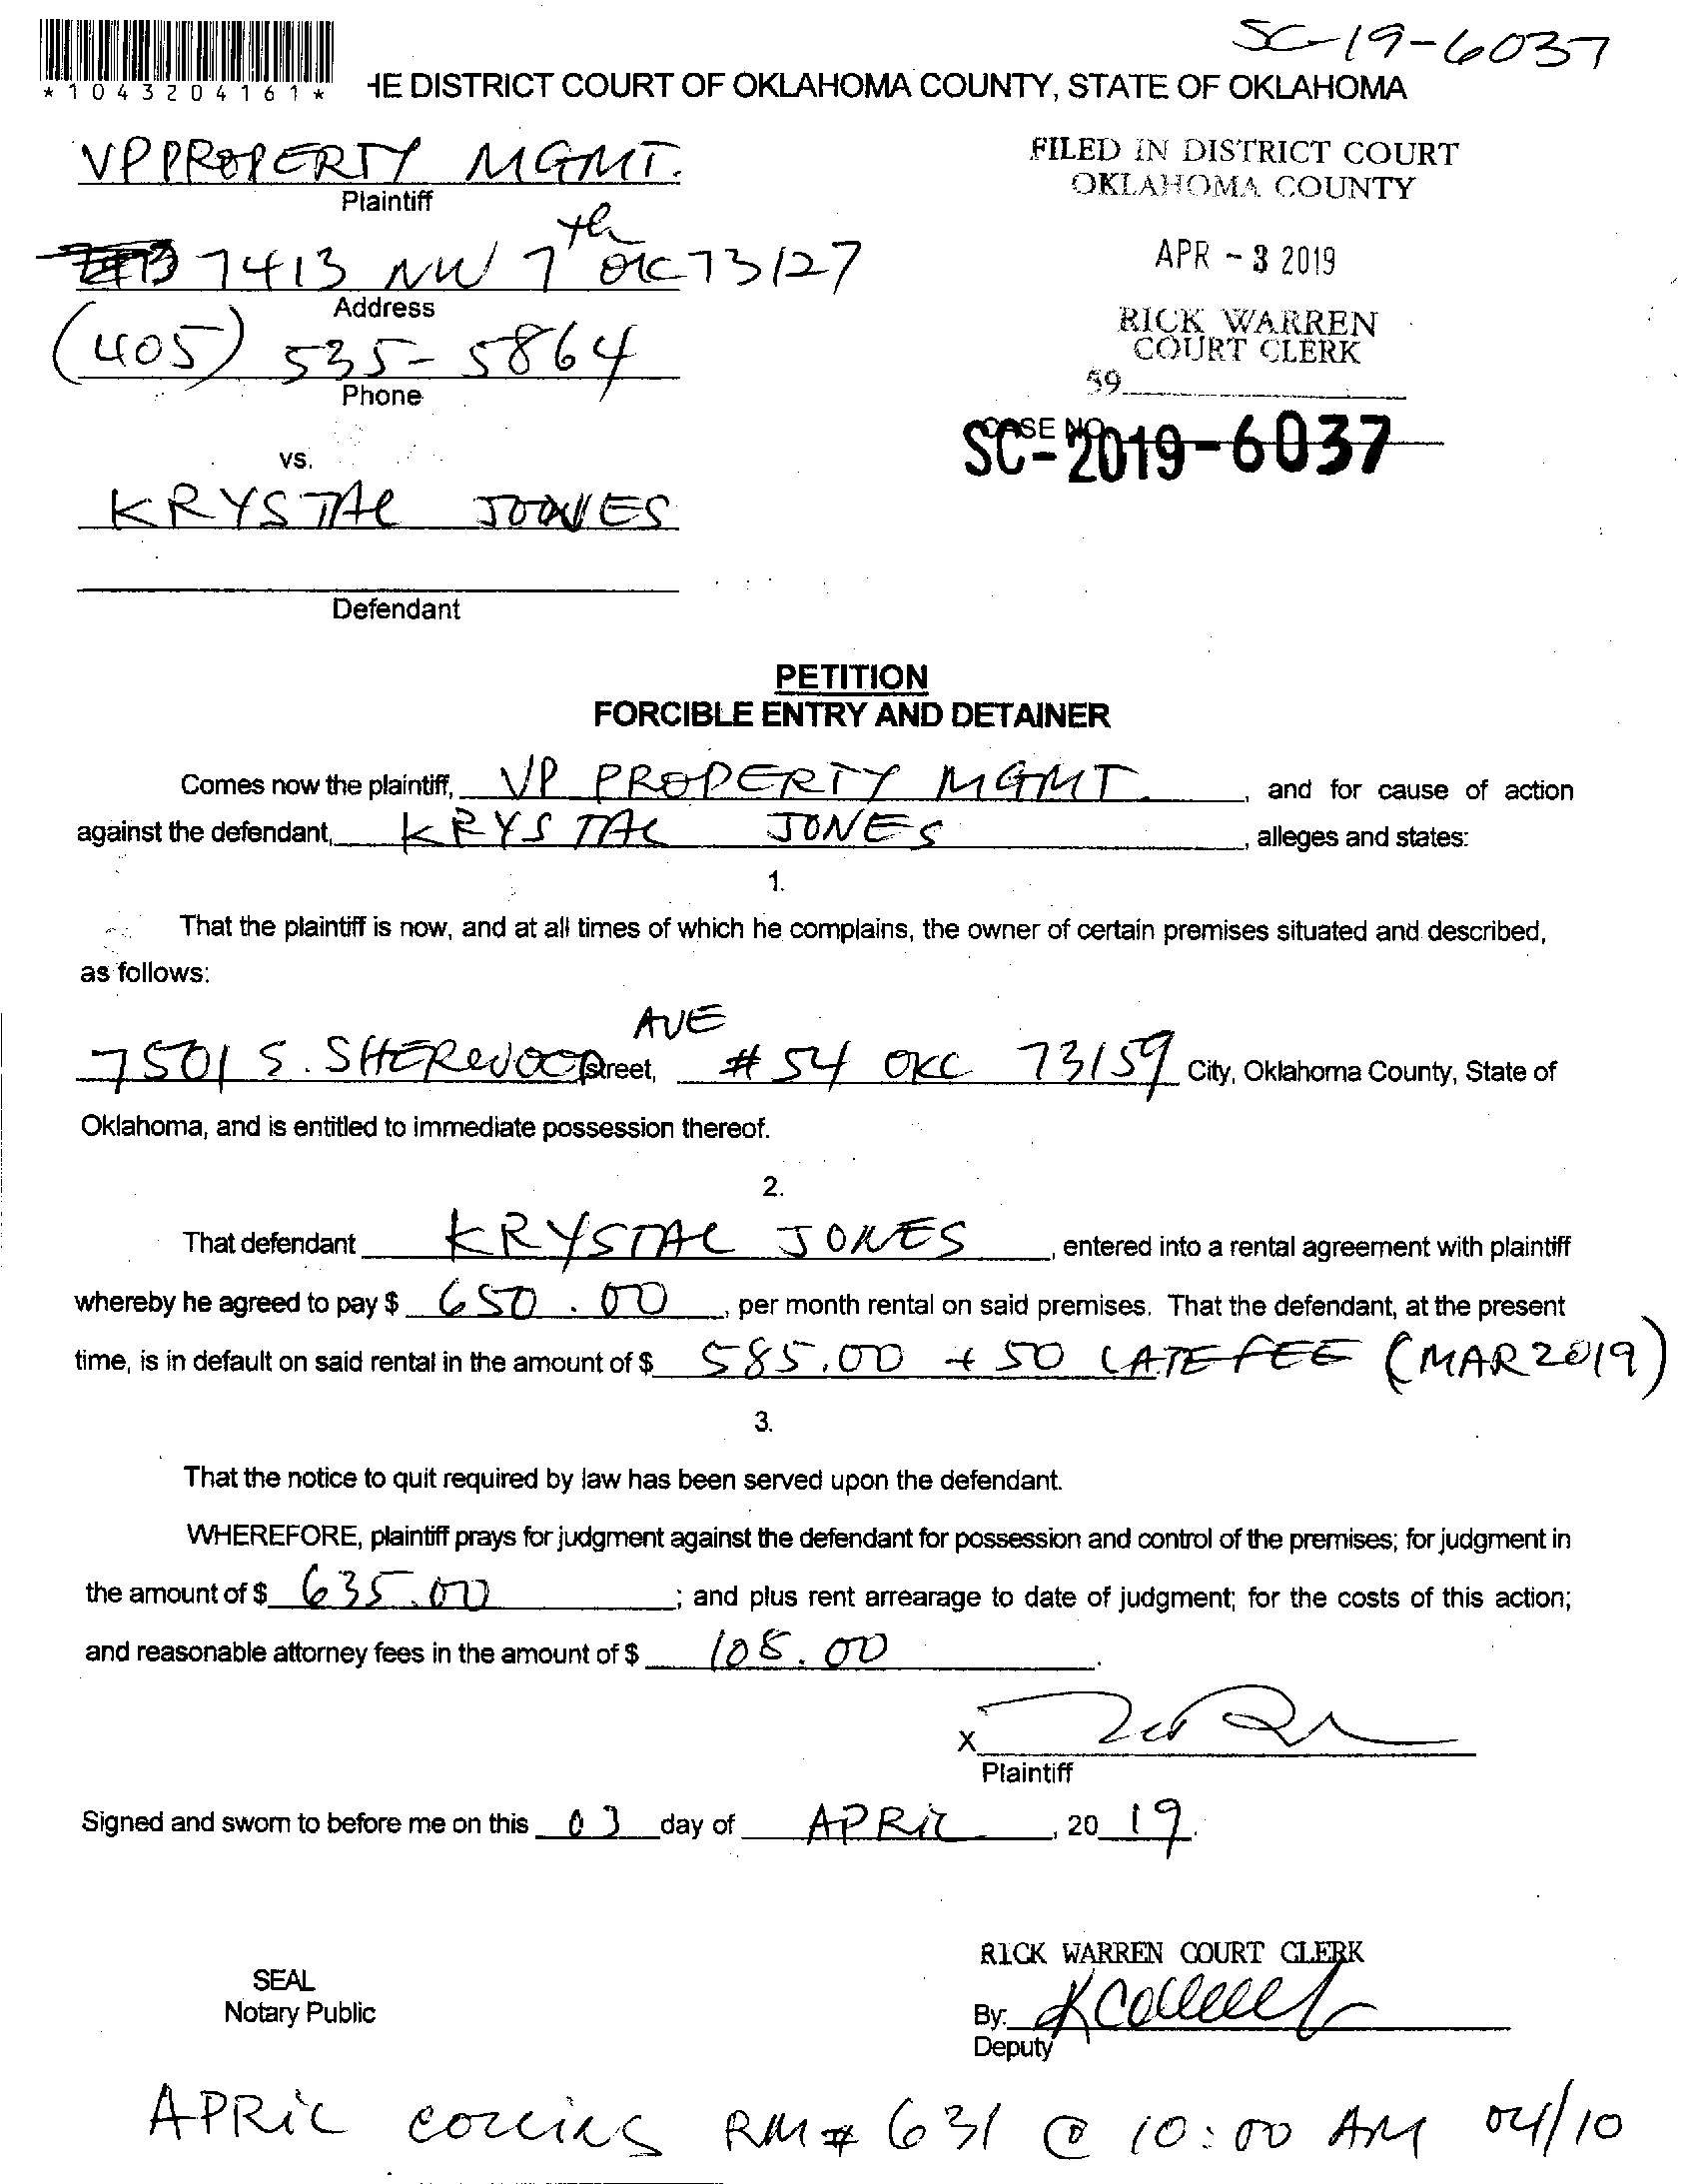 SC-19-6037
*1043204161*
HE DISTRICT COURT OF OKLAHOMA COUNTY, STATE OF OKLAHOMA
VP PROPERTY MGMT.
Plaintiff
FILED IN DISTRICT COURT
OKLAHOMA COUNTY
7413 NW 7th OKC 73127
Address
APR - 3 2019
(405) 535-5864
Phone
RICK WARREN
COURT CLERK
59
CASE NO.
SC-2019-6037
vs.
KRYSTAL JONES
Defendant
PETITION
FORCIBLE ENTRY AND DETAINER
Comes now the plaintiff, VP PROPERTY MGMT. , and for cause of action
against the defendant, KRYSTAL JONES , alleges and states:
1.
That the plaintiff is now, and at all times of which he complains, the owner of certain premises situated and described,
as follows:
AVE
7501 S. SHERWOOD Street, #54 OKC 73159 City, Oklahoma County, State of
Oklahoma, and is entitled to immediate possession thereof.
2.
That defendant KRYSTAL JONES , entered into a rental agreement with plaintiff
whereby he agreed to pay $ 650.00 , per month rental on said premises. That the defendant, at the present
time, is in default on said rental in the amount of $ 585.00 + 50 LATE FEE (MAR 2019)
3.
That the notice to quit required by law has been served upon the defendant.
WHEREFORE, plaintiff prays for judgment against the defendant for possession and control of the premises; for judgment in
the amount of $ 635.00 ; and plus rent arrearage to date of judgment; for the costs of this action;
and reasonable attorney fees in the amount of $ 108.00 .
X
Plaintiff
Signed and sworn to before me on this 03 day of APRIL , 20 19.
RICK WARREN COURT CLERK
SEAL
Notary Public
By:
Deputy
APRIL COLLINS RM# 631 @ 10:00 AM 04/10